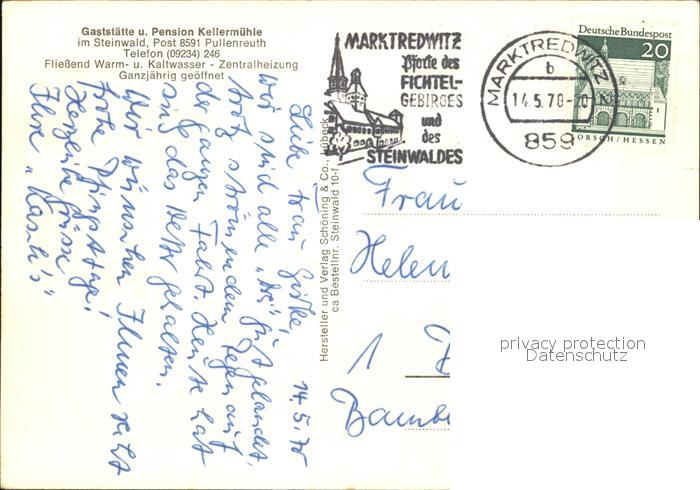 Gaststätte u. Pension Kellermühle
im Steinwald, Post 8591 Pullenreuth
Telefon (09234) 246
Fließend Warm- u. Kaltwasser - Zentralheizung
Ganzjährig geöffnet
MARKTREDWITZ
Pforte des
FICHTEL-
GEBIRGES
und
des
STEINWALDES
MARKTREDWITZ 2
b
14.5.70-20
859
Deutsche Bundespost
20
LORSCH/HESSEN
14.5.70
Liebe Frau
wir sind alle gut gelandet,
trotz strömendem Regen auf
der ganzen Fahrt. Heute hat
sich das Wetter gehalten.
Wir wünschen Ihnen recht
frohe Pfingsttage!
Herzliche Grüsse
Ihre
Hersteller und Verlag Schöning & Co., Lübeck
ca Bestellnr. Steinwald 10-f
Frau
Helen
1
Bambe
privacy protection
Datenschutz